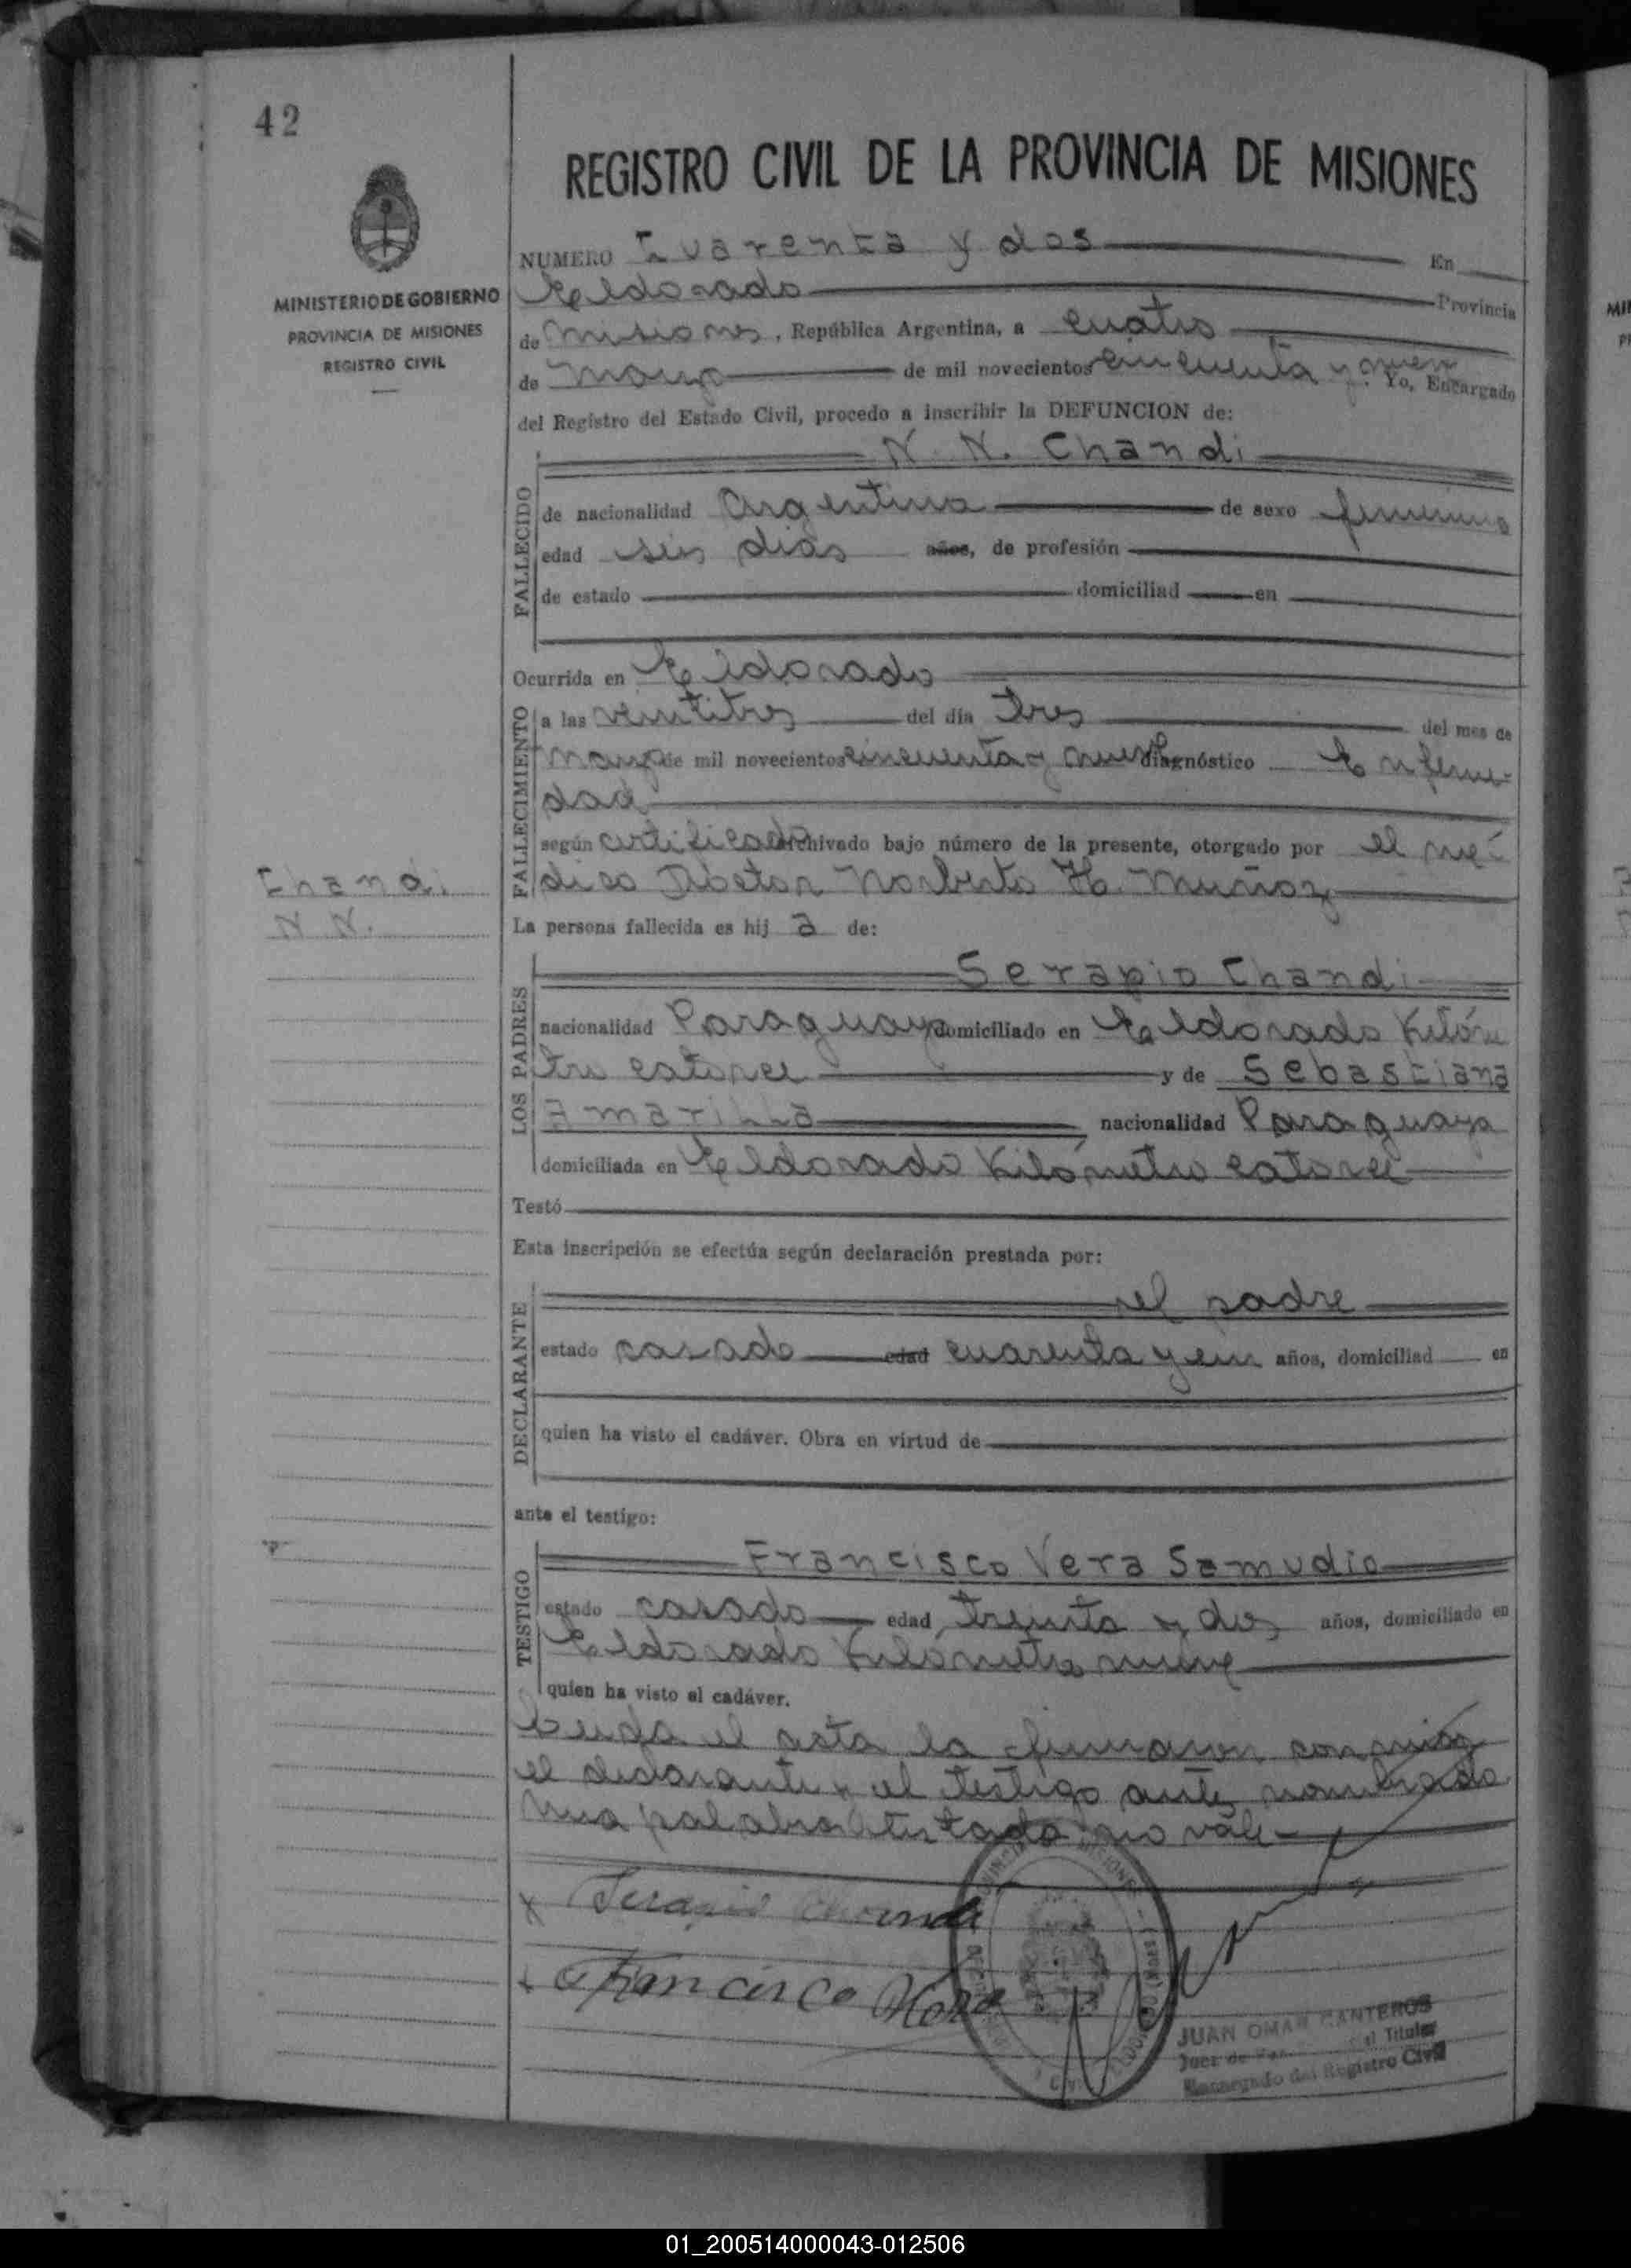 42
REGISTRO CIVIL DE LA PROVINCIA DE MISIONES
MINISTERIO DE GOBIERNO
PROVINCIA DE MISIONES
REGISTRO CIVIL
NUMERO Cuarenta y dos En
Eldorado Provincia
de Misiones, República Argentina, a cuatro
de de mil novecientos cincuenta y nueve. Yo, Encargado
del Registro del Estado Civil, procedo a inscribir la DEFUNCION de:
N. N. Chandi
FALLECIDO
de nacionalidad Argentina de sexo femenino
edad seis días años, de profesión
de estado domiciliad en
Ocurrida en Eldorado
FALLECIMIENTO
a las veintitres del día tres del mes de
de mil novecientos cincuenta y nueve diagnóstico Enferme-
dad
según certificado archivado bajo número de la presente, otorgado por el mé
dico Doctor Norberto H. Muñoz
Chandi
N. N.
La persona fallecida es hij a de:
LOS PADRES
Serapio Chandi
nacionalidad Paraguaya domiciliado en Eldorado Kilóme
tro catorce y de Sebastiana
Amarilla nacionalidad Paraguaya
domiciliada en Eldorado Kilómetro catorce
Testó
Esta inscripción se efectúa según declaración prestada por:
DECLARANTE
el padre
estado casado edad cuarenta y un años, domiciliad en
quien ha visto el cadáver. Obra en virtud de
ante el testigo:
TESTIGO
Francisco Vera Samudio
estado casado edad treinta y dos años, domiciliado en
Eldorado Kilómetro nueve
quien ha visto el cadáver.
Leida el acta la firmaron conmigo
el declarante y el testigo antes nombrado
una palabra testado no vale
Serapio Chandi
Francisco Vera
JUAN OMAR CANTEROS
Juez de Titular
Encargado del Registro Civil
01_200514000043-012506